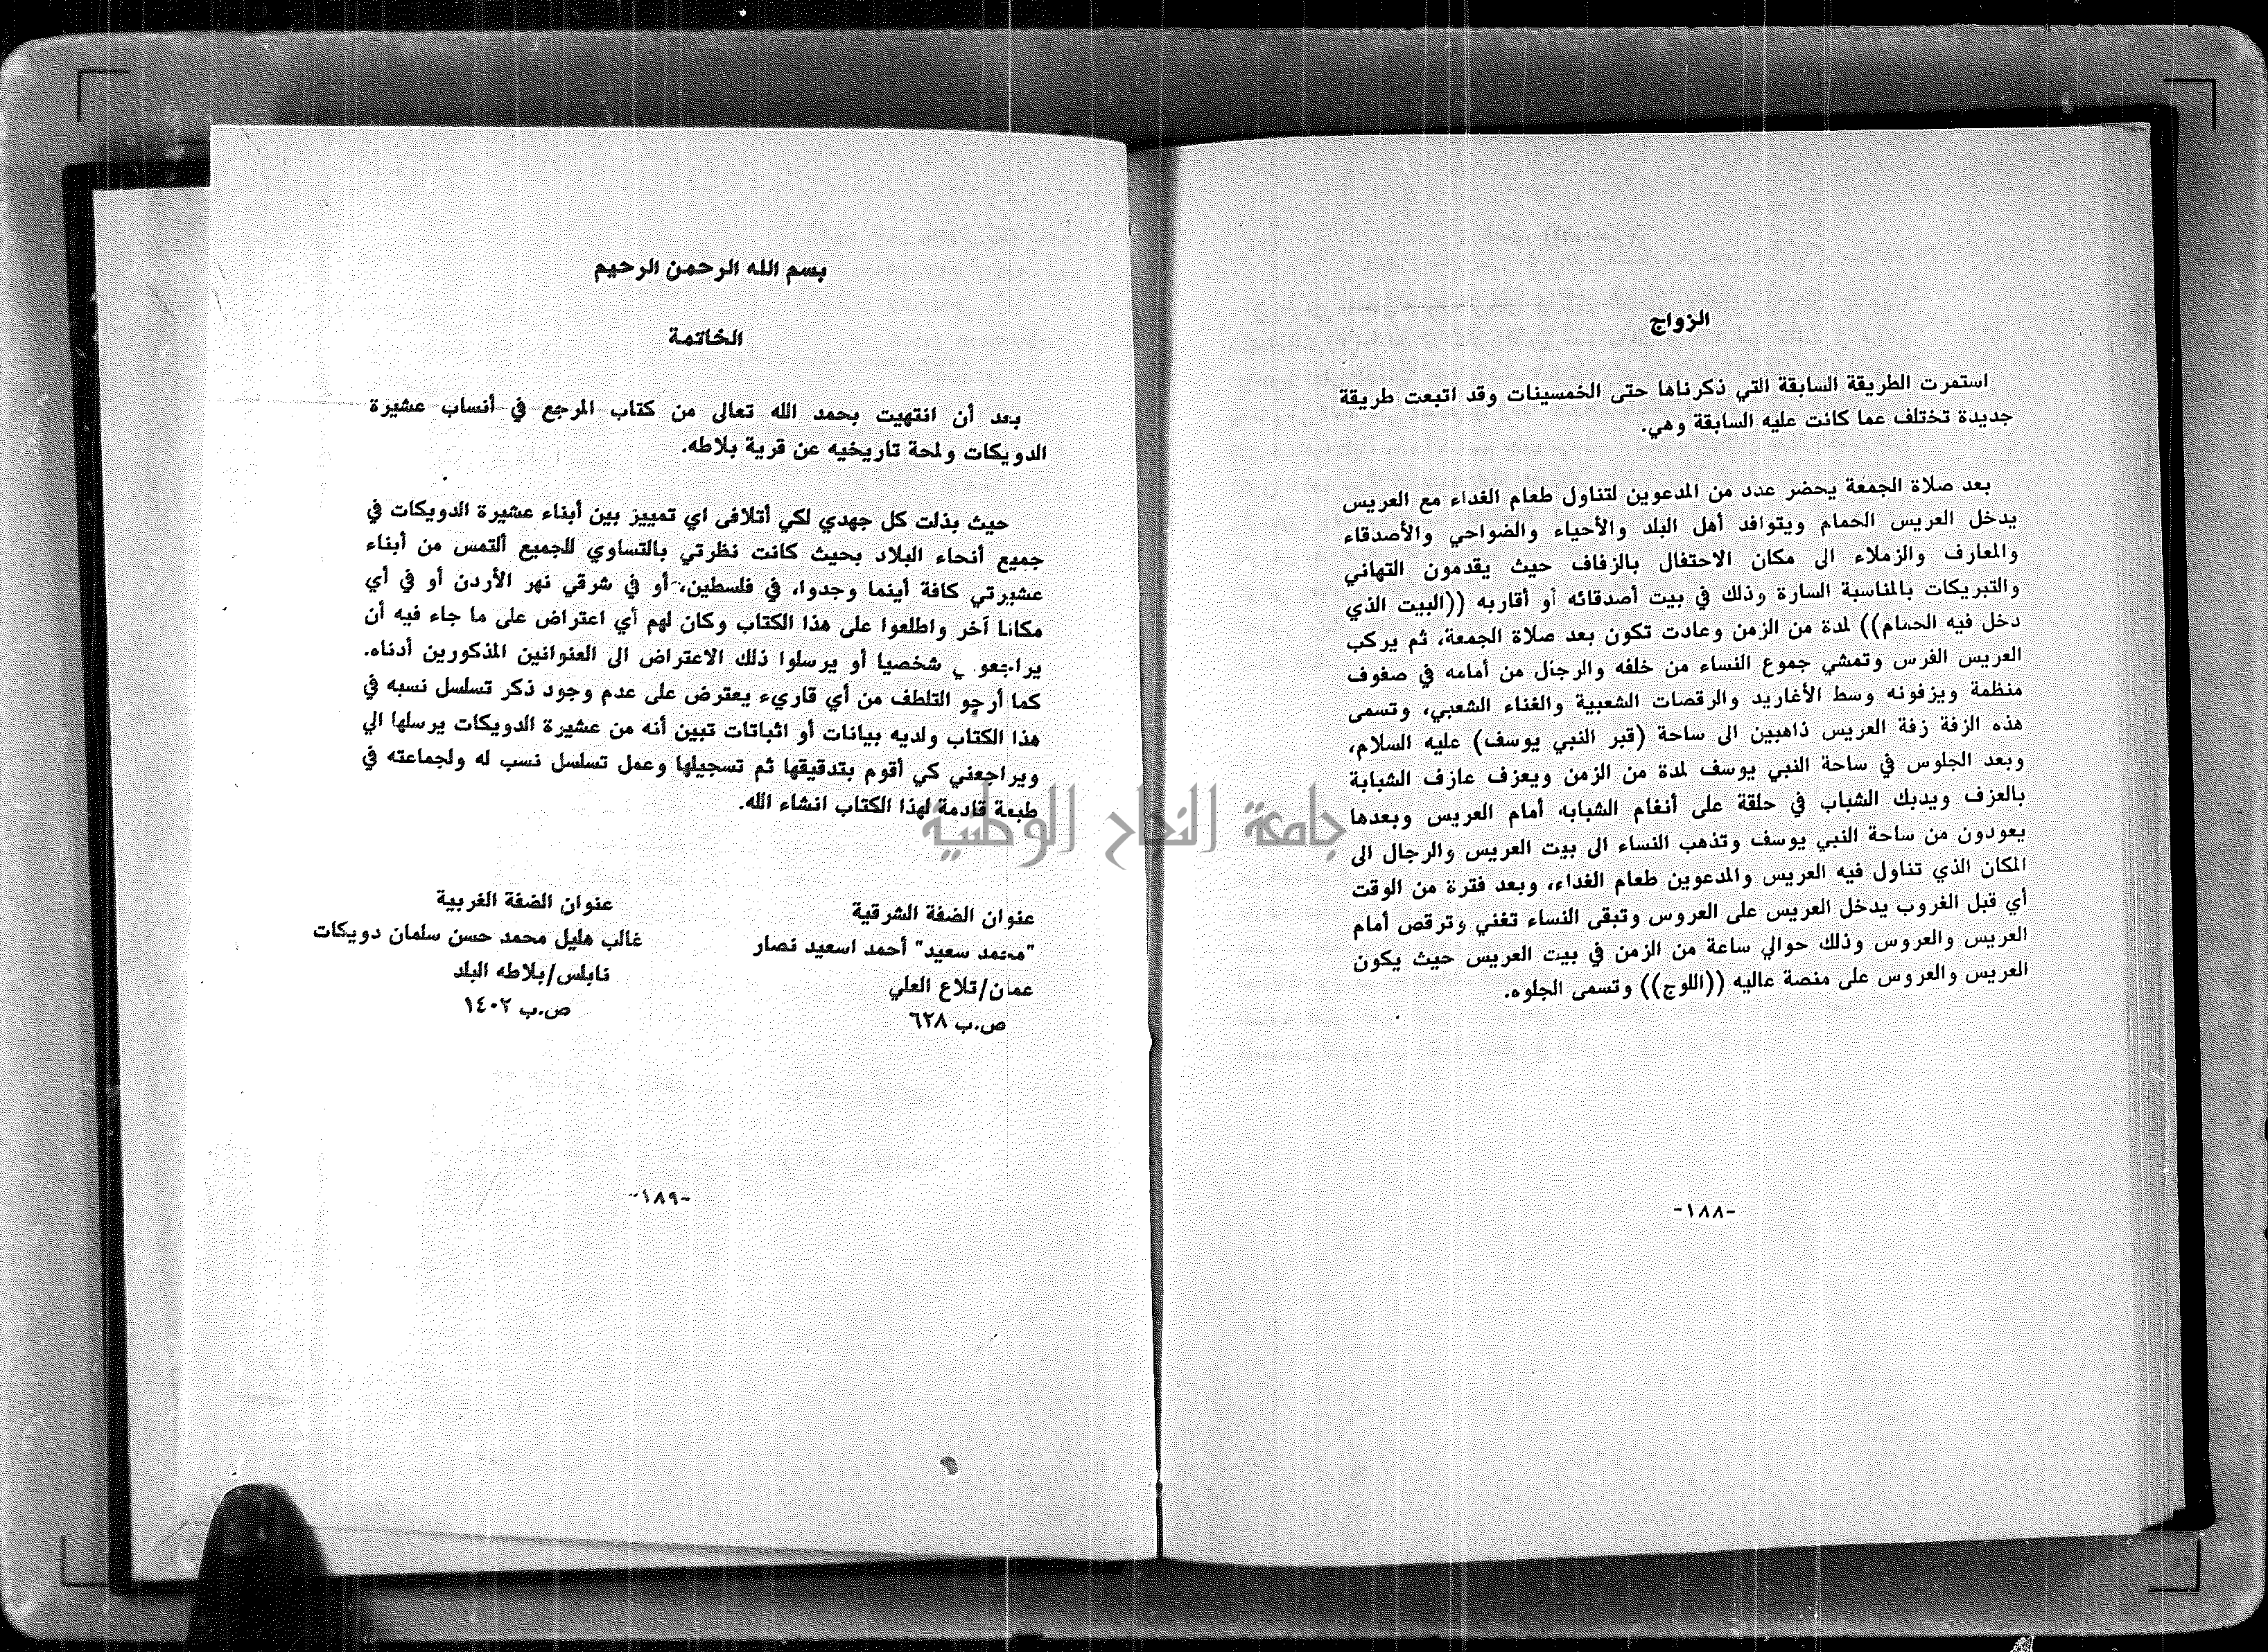 الزواج
استمرت الطريقة السابقة التي ذكرناها حتى الخمسينات وقد اتبعت طريقة
جديدة تختلف عما كانت عليه السابقة وهي.
بعد صلاة الجمعة يحضر عدد من المدعوين لتناول طعام الغداء مع العريس
يدخل العريس الحمام ويتوافد أهل البلد والأحياء والضواحي والأصدقاء
والمعارف والزملاء الى مكان الاحتفال بالزفاف حيث يقدمون التهاني
والتبريكات بالمناسبة السارة وذلك في بيت أصدقائه أو أقاربه ((البيت الذي
دخل فيه الحمام)) لمدة من الزمن وعادت تكون بعد صلاة الجمعة، ثم يركب
العريس الفرس وتمشي جموع النساء من خلفه والرجال من أمامه في صفوف
منظمة ويزفونه وسط الأغاريد والرقصات الشعبية والغناء الشعبي، وتسمى
هذه الزفة زفة العريس ذاهبين الى ساحة (قبر النبي يوسف) عليه السلام،
وبعد الجلوس في ساحة النبي يوسف لمدة من الزمن ويعزف عازف الشبابة
بالعزف ويدبك الشباب في حلقة على أنغام الشبابه أمام العريس وبعدها
يعودون من ساحة النبي يوسف وتذهب النساء الى بيت العريس والرجال الى
المكان الذي تناول فيه العريس والمدعوين طعام الغداء، وبعد فترة من الوقت
أي قبل الغروب يدخل العريس على العروس وتبقى النساء تغني وترقص أمام
العريس والعروس وذلك حوالي ساعة من الزمن في بيت العريس حيث يكون
العريس والعروس على منصة عاليه ((اللوج)) وتسمى الجلوه.
-١٨٨-
بسم الله الرحمن الرحيم
الخاتمة
بعد أن انتهيت بحمد الله تعالى من كتاب المرجع في أنساب عشيرة
الدويكات ولمحة تاريخيه عن قرية بلاطه.
حيث بذلت كل جهدي لكي أتلافى اي تمييز بين أبناء عشيرة الدويكات في
جميع أنحاء البلاد بحيث كانت نظرتي بالتساوي للجميع ألتمس من أبناء
عشيرتي كافة أينما وجدوا، في فلسطين، أو في شرقي نهر الأردن أو في أي
مكانا آخر واطلعوا على هذا الكتاب وكان لهم أي اعتراض على ما جاء فيه أن
شخصيا أو يرسلوا ذلك الاعتراض الى العنوانين المذكورين أدناه.
كما أرجو التلطف من أي قاريء يعترض على عدم وجود ذكر تسلسل نسبه في
هذا الكتاب ولديه بيانات أو اثباتات تبين أنه من عشيرة الدويكات يرسلها الي
ويراجعني كي أقوم بتدقيقها ثم تسجيلها وعمل تسلسل نسب له ولجماعته في
طبعة قادمة لهذا الكتاب انشاء الله.
عنوان الضفة الشرقية
"محمد سعيد" أحمد اسعيد نصار
عمان/تلاع العلي
ص.ب ٦٢٨
عنوان الضفة الغربية
غالب هليل محمد حسن سلمان دويكات
نابلس/بلاطه البلد
ص.ب ١٤٠٢
-١٨٩-
جامعة النجاح الوطنية